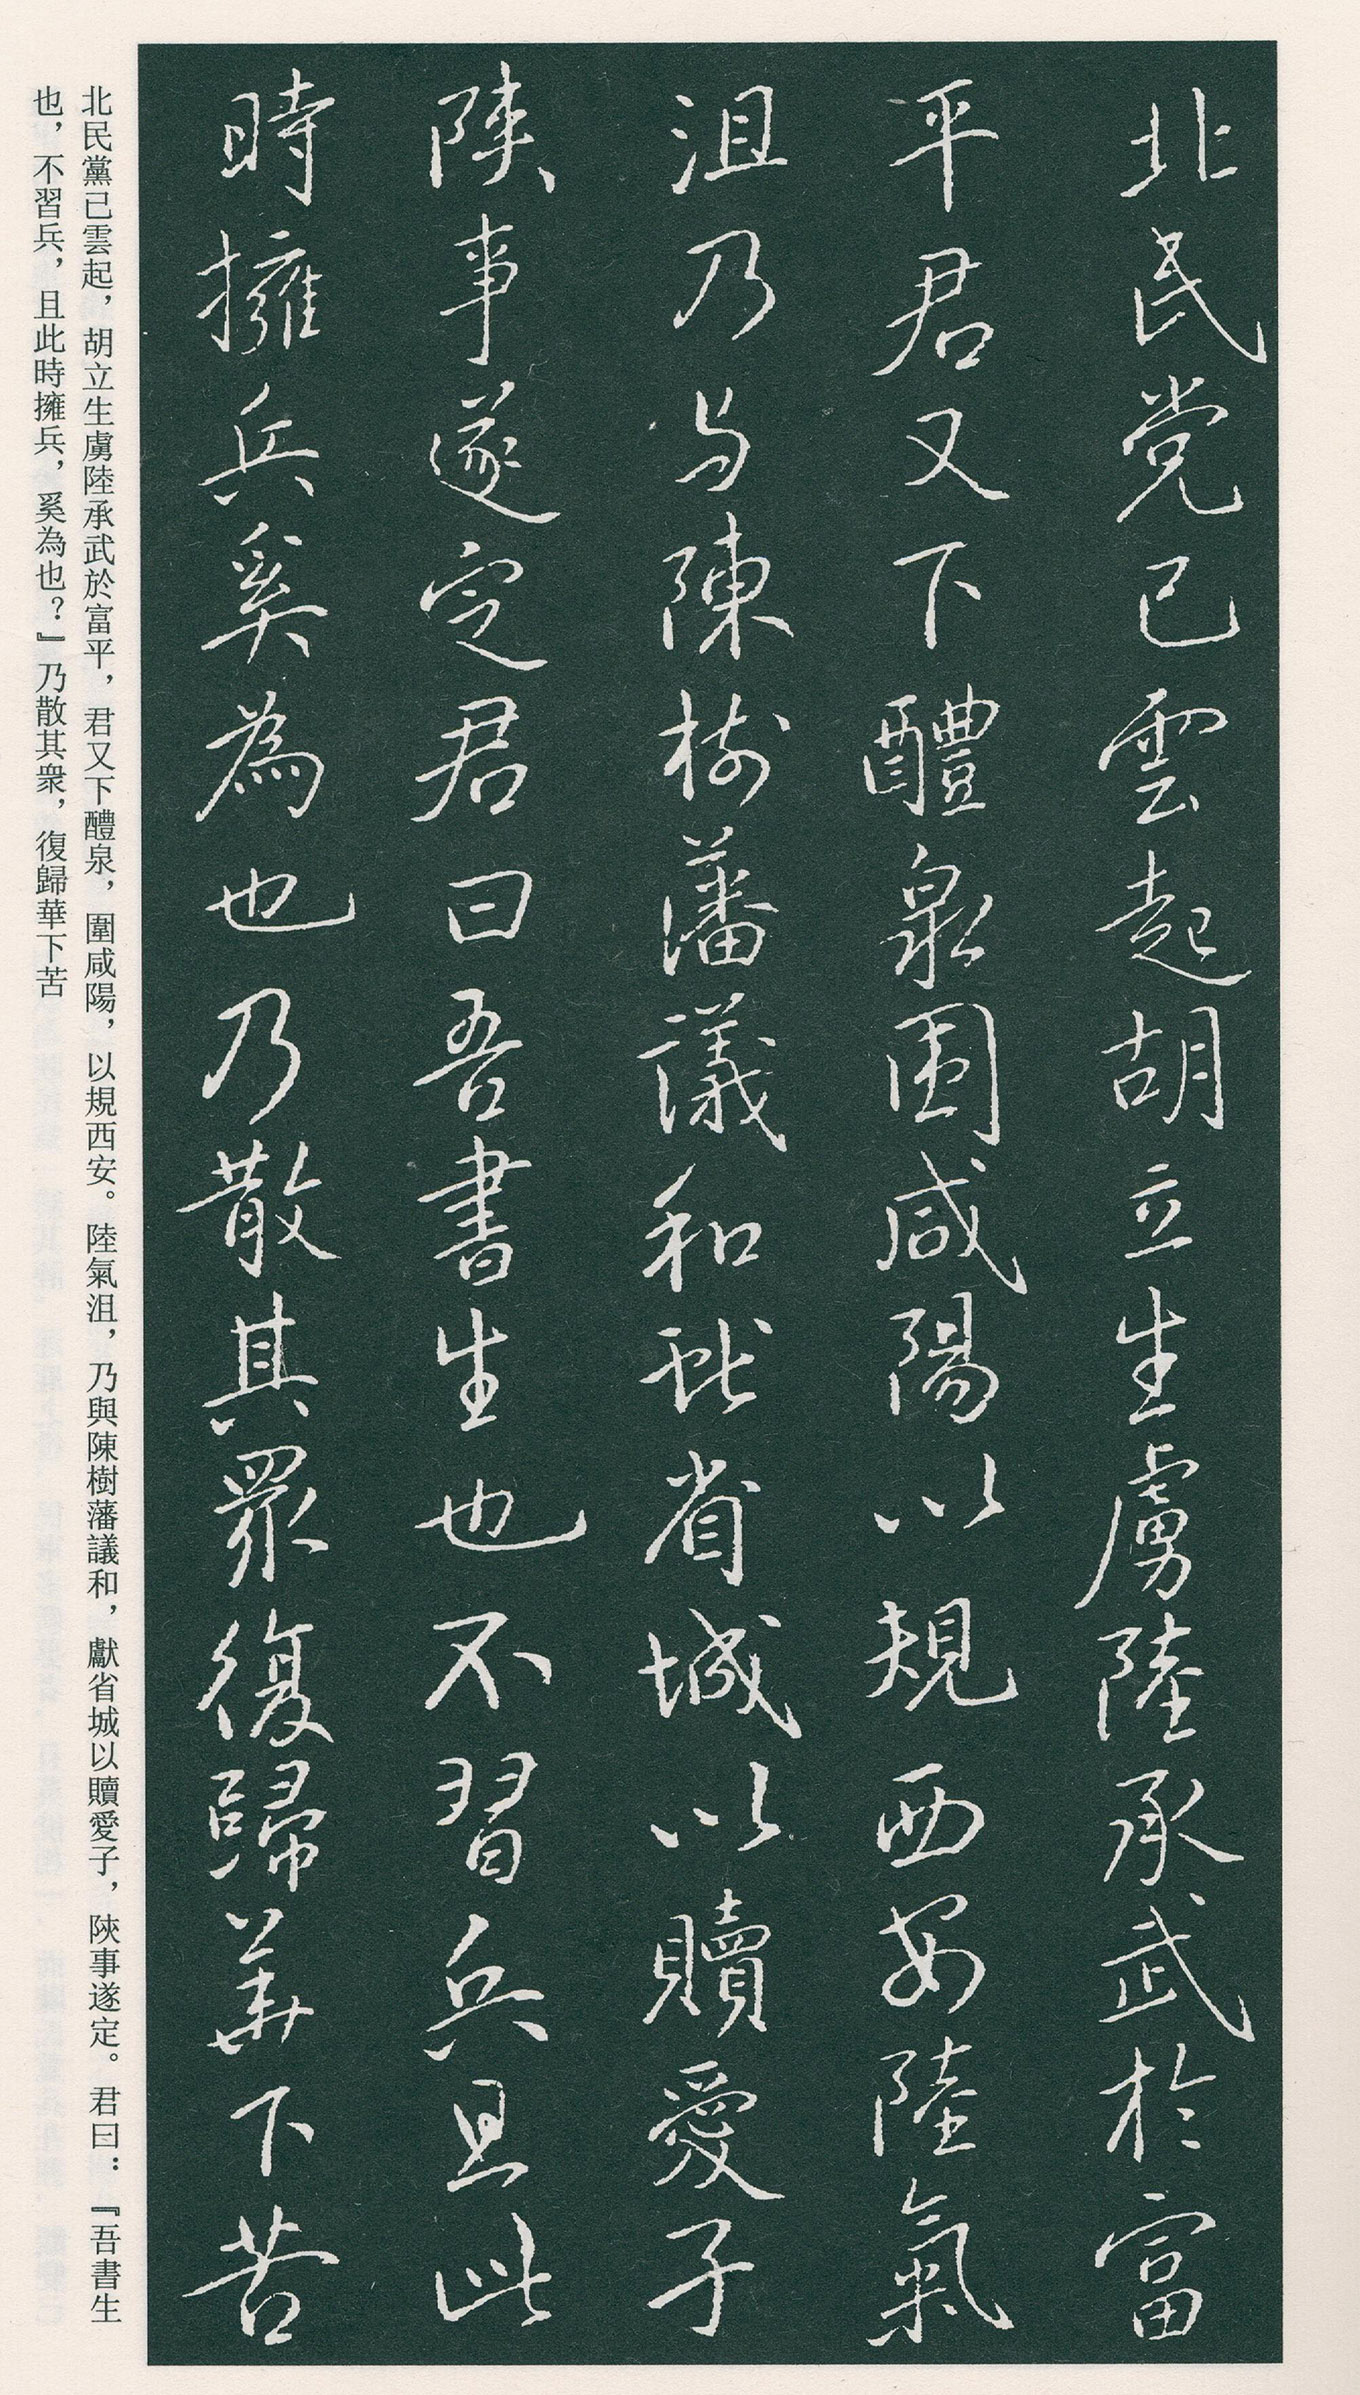 北民党已雲起胡立生虜陸承武於富
平君又下醴泉围咸陽以規西安陸氣
沮乃与陳樹藩議和献省城以贖愛子
陝事遂定君曰吾書生也不習兵且此
時擁兵奚為也乃散其眾復歸華下苦
北民黨已雲起，胡立生虜陸承武於富平，君又下醴泉，圍咸陽，以規西安。陸氣沮，乃與陳樹藩議和，獻省城以贖愛子，陝事遂定。君曰：『吾書生
也，不習兵，且此時擁兵，奚為也？』乃散其衆，復歸華下苦